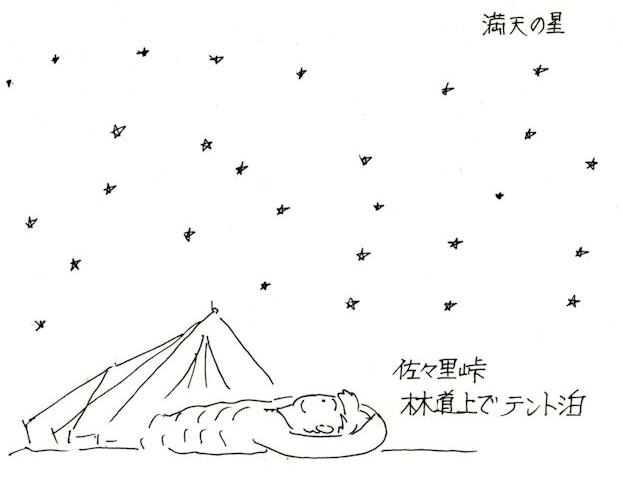 満天の星
佐々里峠
林道上でテント泊